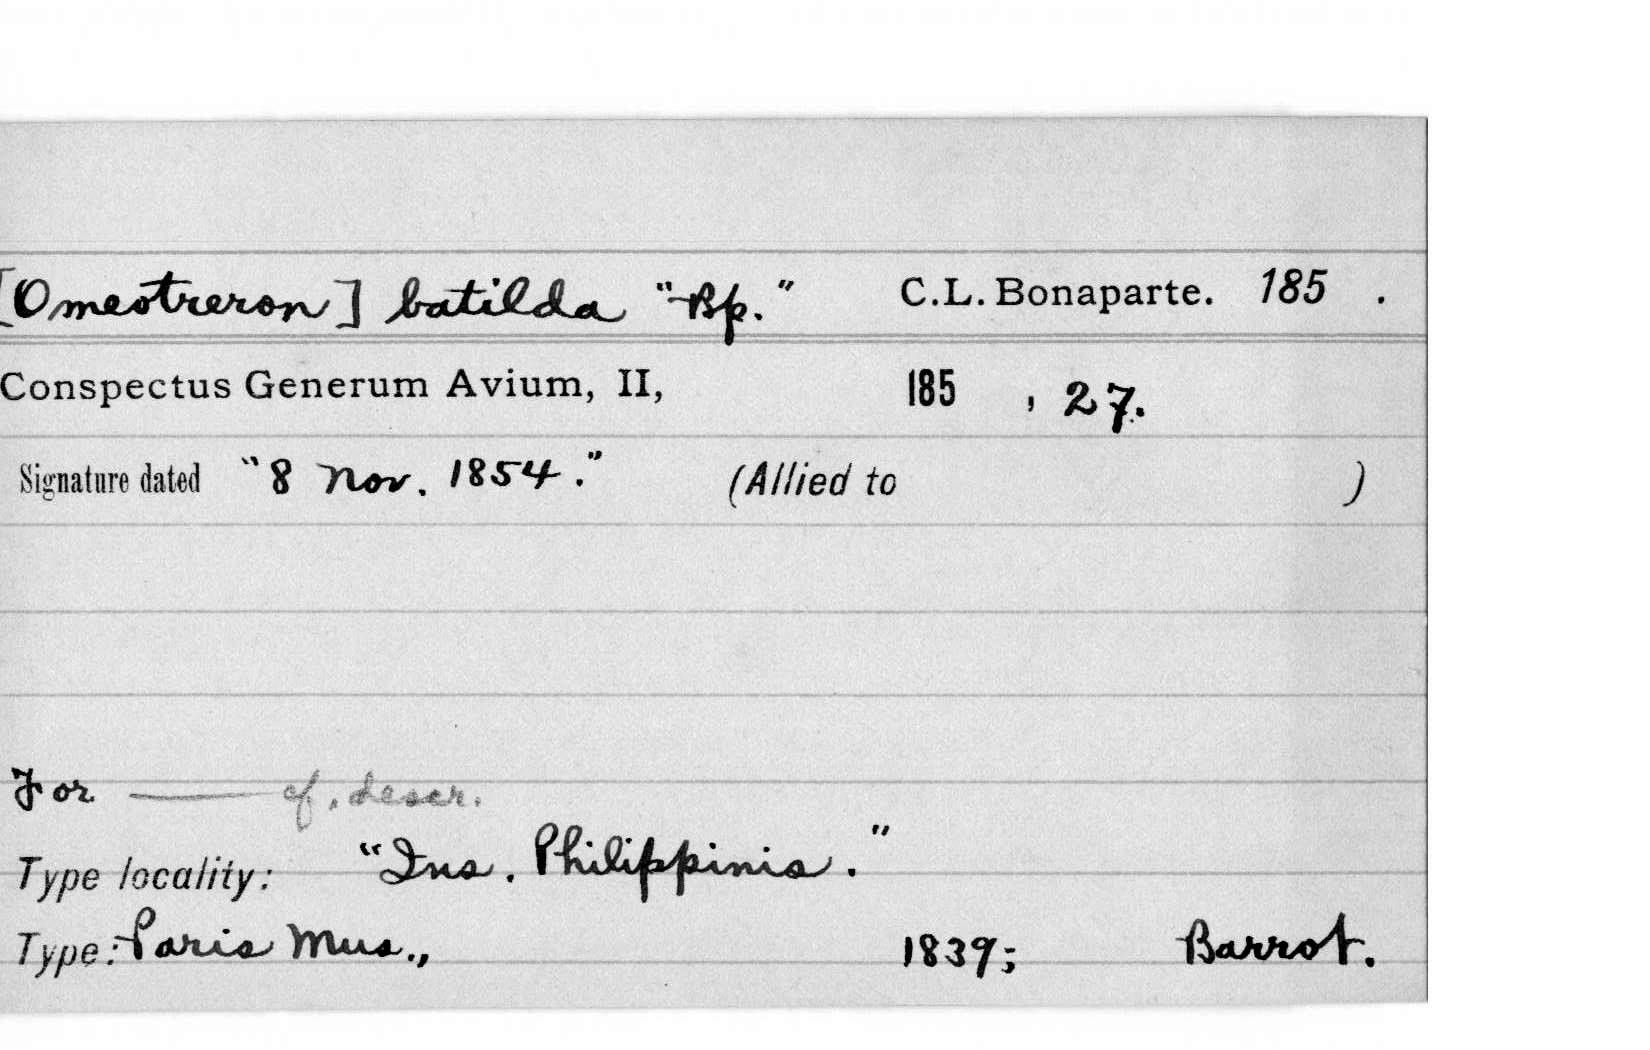 [Omeotreron] batilda "Bp." C.L. Bonaparte. 185 .
Conspectus Generum Avium, II, 185 , 27.
Signature dated "8 Nov. 1854." (Allied to )
For —— cf. descr.
Type locality: "Ins. Philippinis."
Type: Paris Mus., 1839; Barrot.